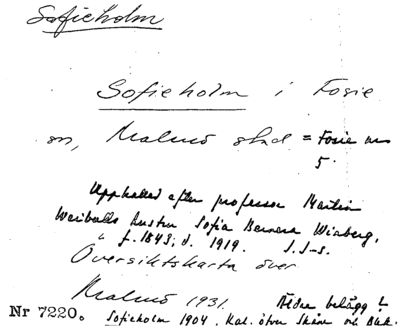 Sofieholm
Sofieholm i Fosie
sn, Malmö stad = Fosie nr
5.
Uppkallad efter professor Martin
Weibulls hustru Sofia Bernera Winberg,
f. 1843, d. 1919. I. I-s.
Översiktskarta över
Malmö 1931. Äldre belägg?
Nr 7220. Sofieholm 1904. Kat. över Skåne och Blek.